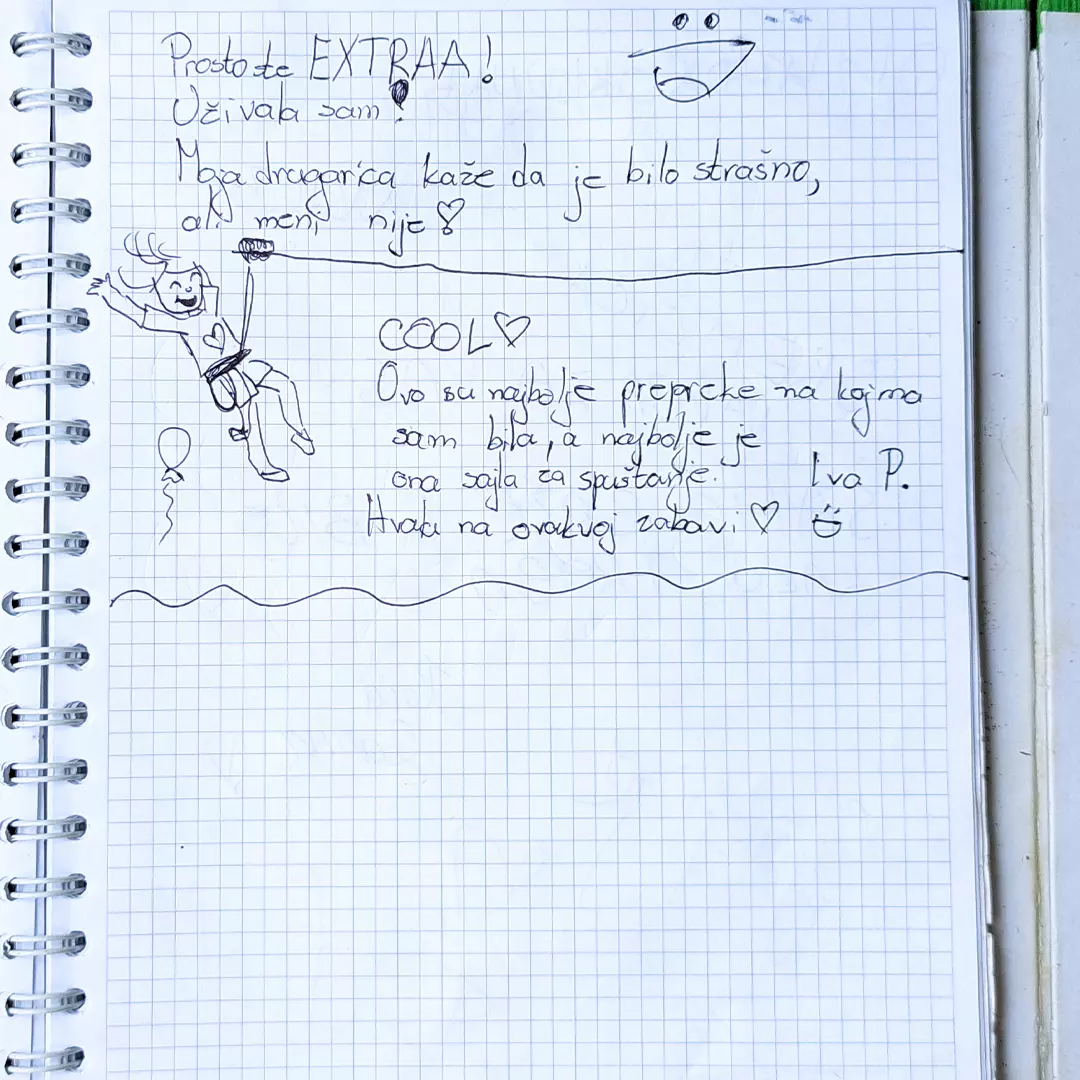 Prosto ste EXTRAA!
Uživala sam!
Moja drugarica kaže da je bilo strašno,
ali meni nije
COOL
Ovo su najbolje preprcke na kojma
sam bila, a najbolje je
ona sajla za spuštanje.
Iva P.
Hvala na ovakvoj zabavi